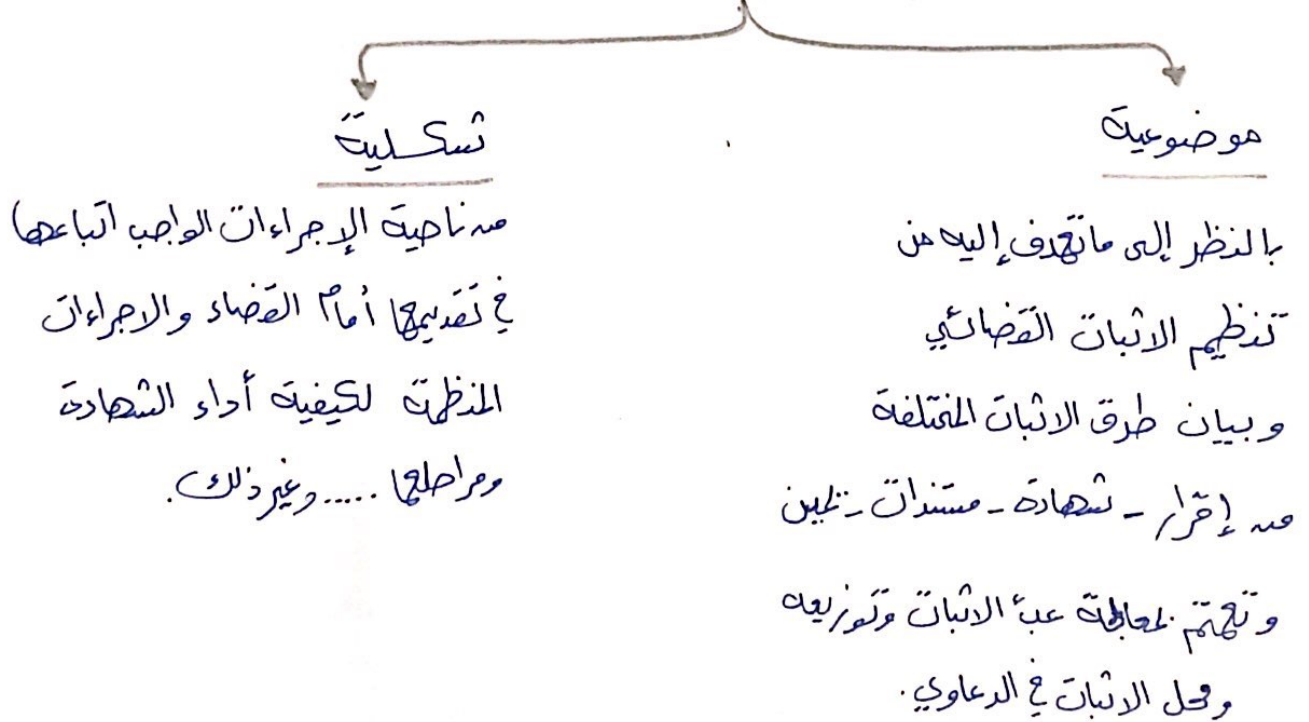 موضوعية
بالنظر إلى ما تهدف إليه من
تنظيم الاثبات القضائي
وبيان طرق الاثبات المختلفة
من إقرار - شهادة - مستندات - يمين
وتهتم بمعالجة عبء الاثبات وتوزيعه
ومحل الاثبات في الدعاوي.
شكلية
من ناحية الإجراءات الواجب اتباعها
في تقديمها أمام القضاء والاجراءات
المنظمة لكيفية أداء الشهادة
ومراحلها ..... وغير ذلك.